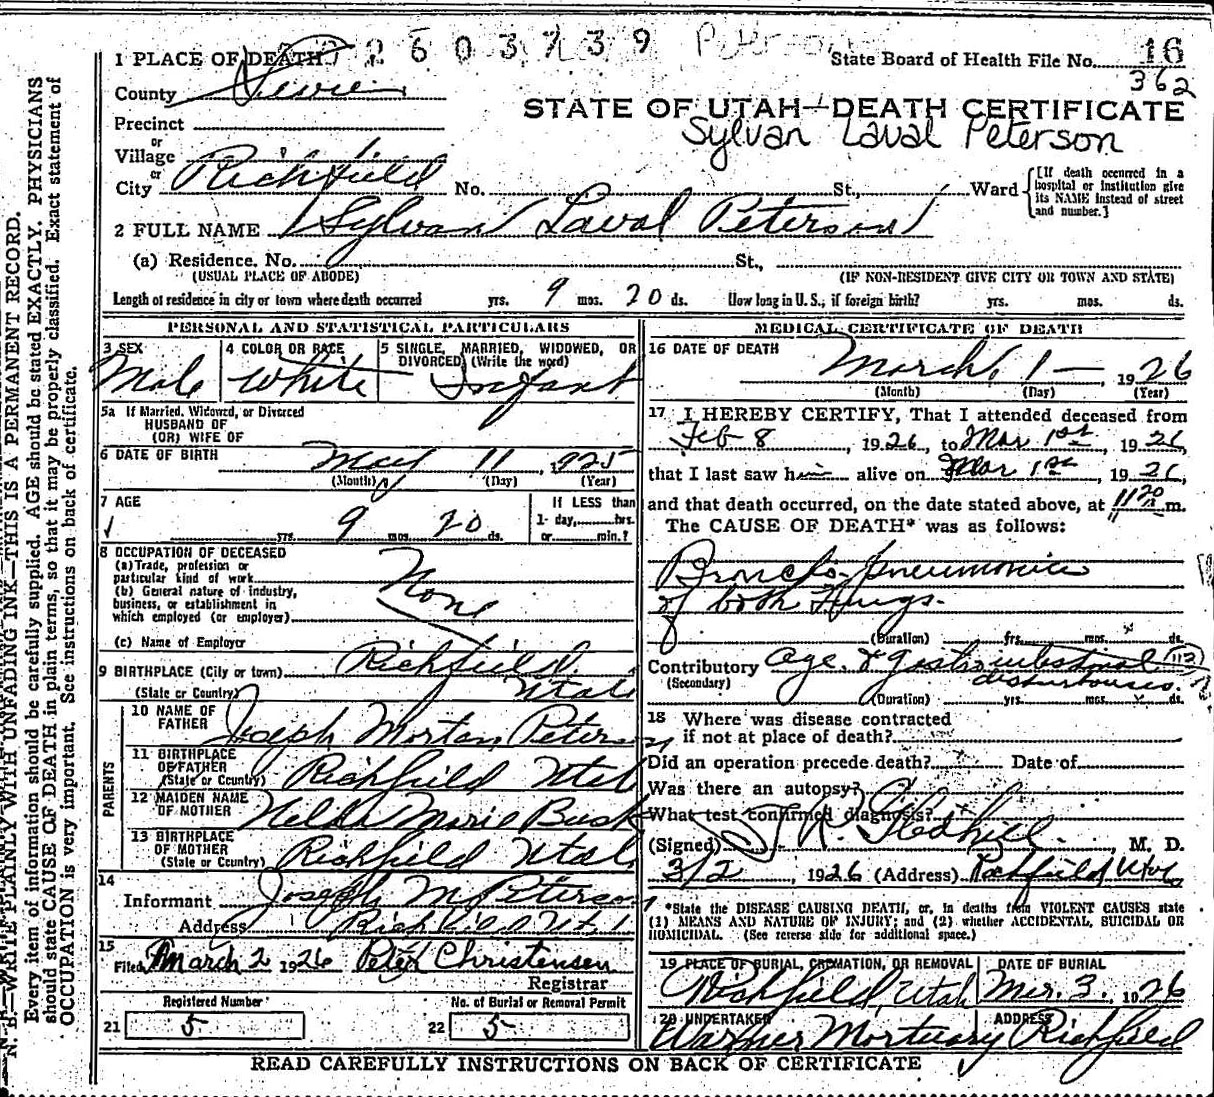 2603739 Peterson
1 PLACE OF DEATH
State Board of Health File No. 16
362
County Sevier
STATE OF UTAH—DEATH CERTIFICATE
Sylvan Laval Peterson
Precinct
or
Village
or
City Richfield No. St., Ward [If death occurred in a hospital or institution give its NAME instead of street and number.]
2 FULL NAME Sylvan Laval Peterson
(a) Residence. No. St.,
(USUAL PLACE OF ABODE) (IF NON-RESIDENT GIVE CITY OR TOWN AND STATE)
Length of residence in city or town where death occurred yrs. 9 mos. 20 ds. How long in U. S., if foreign birth? yrs. mos. ds.
PERSONAL AND STATISTICAL PARTICULARS
3 SEX Male
4 COLOR OR RACE White
5 SINGLE, MARRIED, WIDOWED, OR DIVORCED (Write the word) Infant
5a If Married, Widowed, or Divorced
HUSBAND OF
(OR) WIFE OF
6 DATE OF BIRTH May 11, 1925
(Month) (Day) (Year)
7 AGE yrs. 9 mos. 20 ds.
If LESS than
1- day, hrs.
or min.?
8 OCCUPATION OF DECEASED
(a) Trade, profession or
particular kind of work None
(b) General nature of industry,
business, or establishment in
which employed (or employer)
(c) Name of Employer
9 BIRTHPLACE (City or town) Richfield
(State or Country) Utah
PARENTS
10 NAME OF FATHER Joseph Morton Peterson
11 BIRTHPLACE OF FATHER (State or Country) Richfield Utah
12 MAIDEN NAME OF MOTHER Marie
13 BIRTHPLACE OF MOTHER (State or Country) Richfield Utah
14
Informant Joseph M Peterson
Address Richfield Ut
15
Filed March 2 1926 Peter Christensen
Registrar
Registered Number No. of Burial or Removal Permit
21 5 22 5
MEDICAL CERTIFICATE OF DEATH
16 DATE OF DEATH March 1—, 1926
(Month) (Day) (Year)
17 I HEREBY CERTIFY, That I attended deceased from
Feb 8, 1926, to Mar 1st, 1926,
that I last saw him alive on Mar 1st, 1926,
and that death occurred, on the date stated above, at m.
The CAUSE OF DEATH* was as follows:
Broncho-pneumonia
of both lungs.
(Duration) yrs. mos. ds.
Contributory Age & gastrointestinal
(Secondary) disturbances.
(Duration) yrs. mos. ds.
18 Where was disease contracted
if not at place of death?
Did an operation precede death? Date of
Was there an autopsy?
What test confirmed diagnosis?
(Signed) J R Gledhill, M. D.
3/2, 1926 (Address) Richfield Utah
*State the DISEASE CAUSING DEATH, or, in deaths from VIOLENT CAUSES state
(1) MEANS AND NATURE OF INJURY; and (2) whether ACCIDENTAL, SUICIDAL OR
HOMICIDAL. (See reverse side for additional space.)
19 PLACE OF BURIAL, CREMATION, OR REMOVAL Richfield, Utah
DATE OF BURIAL Mar. 3. 1926
20 UNDERTAKER Warner Mortuary
ADDRESS Richfield
READ CAREFULLY INSTRUCTIONS ON BACK OF CERTIFICATE
N. B.—WRITE PLAINLY WITH UNFADING INK—THIS IS A PERMANENT RECORD.
Every item of information should be carefully supplied. AGE should be stated EXACTLY. PHYSICIANS
should state CAUSE OF DEATH in plain terms, so that it may be properly classified. Exact statement of
OCCUPATION is very important. See instructions on back of certificate.